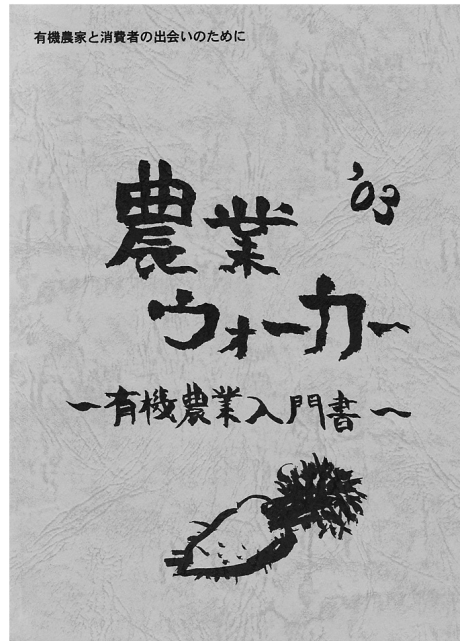 有機農家と消費者の出会いのために
'03
農業
ウォーカー
〜有機農業入門書〜